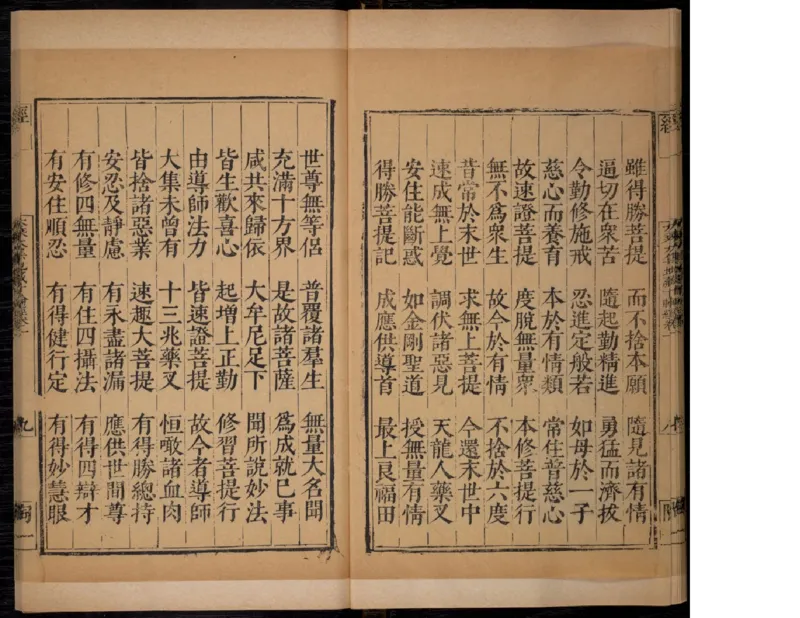 經
雖得勝菩提 而不捨本願 隨見諸有情
逼切在衆苦 隨起勤精進 勇猛而濟拔
令勤修施戒 忍進定般若 如母於一子
慈心而養育 本於有情類 常住普慈心
故速證菩提 度脫無量衆 本修菩提行
無不爲衆生 故今於有情 不捨於六度
昔常於末世 求無上菩提 今還末世中
速成無上覺 調伏諸惡見 天龍人藥叉
安住能斷惑 如金剛聖道 授無量有情
得勝菩提記 成應供導首 最上良福田
世尊無等侶 普覆諸羣生 無量大名聞
充滿十方界 是故諸菩薩 爲成就已事
咸共來歸依 大牟尼足下 聞所說妙法
皆生歡喜心 起增上正勤 修習菩提行
由導師法力 皆速證菩提 故今者導師
大集未曾有 十三兆藥叉 恒噉諸血肉
皆捨諸惡業 速趣大菩提 有得勝總持
安忍及靜慮 有永盡諸漏 應供世間尊
有修四無量 有住四攝法 有得四辯才
有安住順忍 有得健行定 有得妙慧眼
經 九